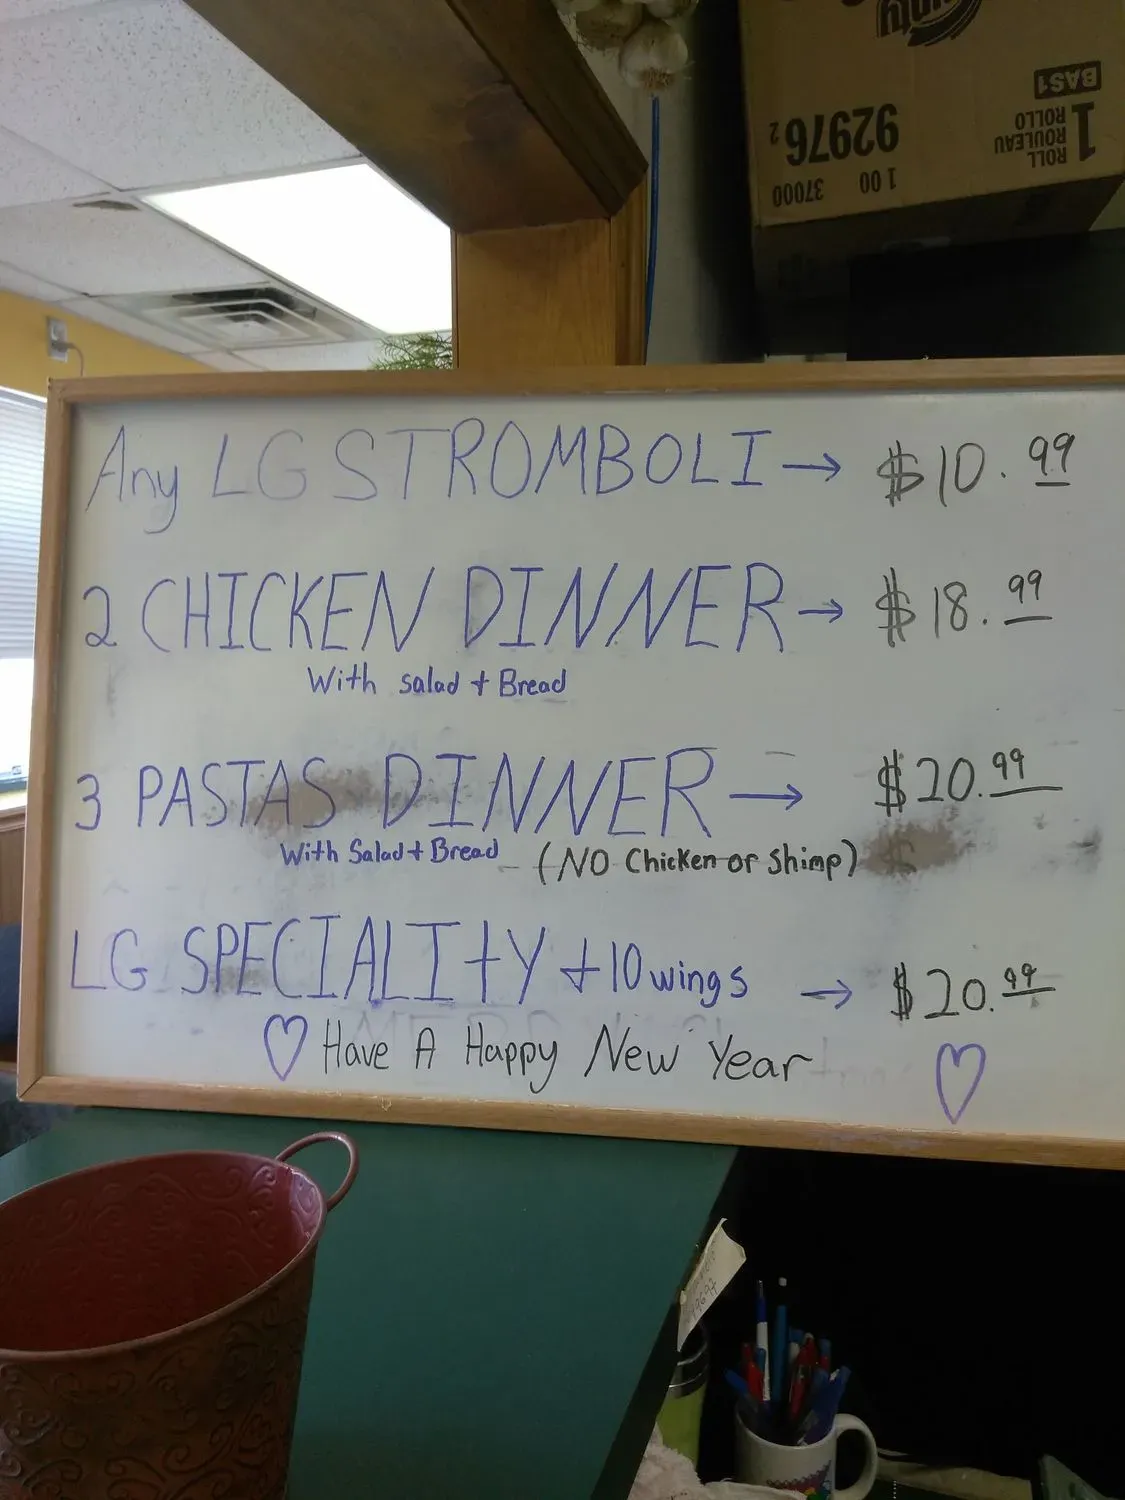 BAS1
1 ROLL
ROULEAU
ROLLO
92976 2
37000 1 00
Any LG STROMBOLI → $10.99
2 CHICKEN DINNER → $18.99
With salad + Bread
3 PASTAS DINNER → $20.99
With Salad + Bread (NO Chicken or Shimp)
LG SPECIALITY + 10 wings → $20.99
♡ Have A Happy New Year ♡